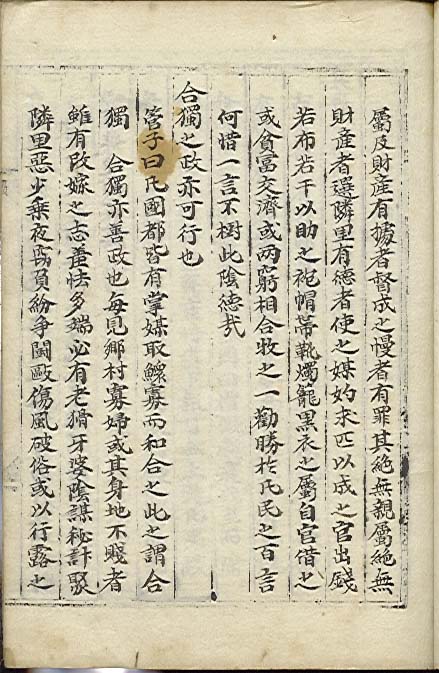 屬及財産有據者督成之慢者有罪其絶無親屬絶無
財産者選隣里有德者使之媒妁求匹以成之官出錢
若布若干以助之袍帽帶靴燭籠黒衣之屬自官借之
或貧富交濟或兩窮相合牧之一勸勝於凡民之百言
何惜一言不樹此陰德㦲
合獨之政亦可行也
管子曰凡國都皆有掌媒取鰥寡而和合之此之謂合
獨　合獨亦善政也每見鄕村寡婦或其身地不賤者
雖有改嫁之志羞怯多端必有老猾牙婆陰謀秘計聚
隣里惡少乗夜刼負紛争鬪毆傷風破俗或以行露之